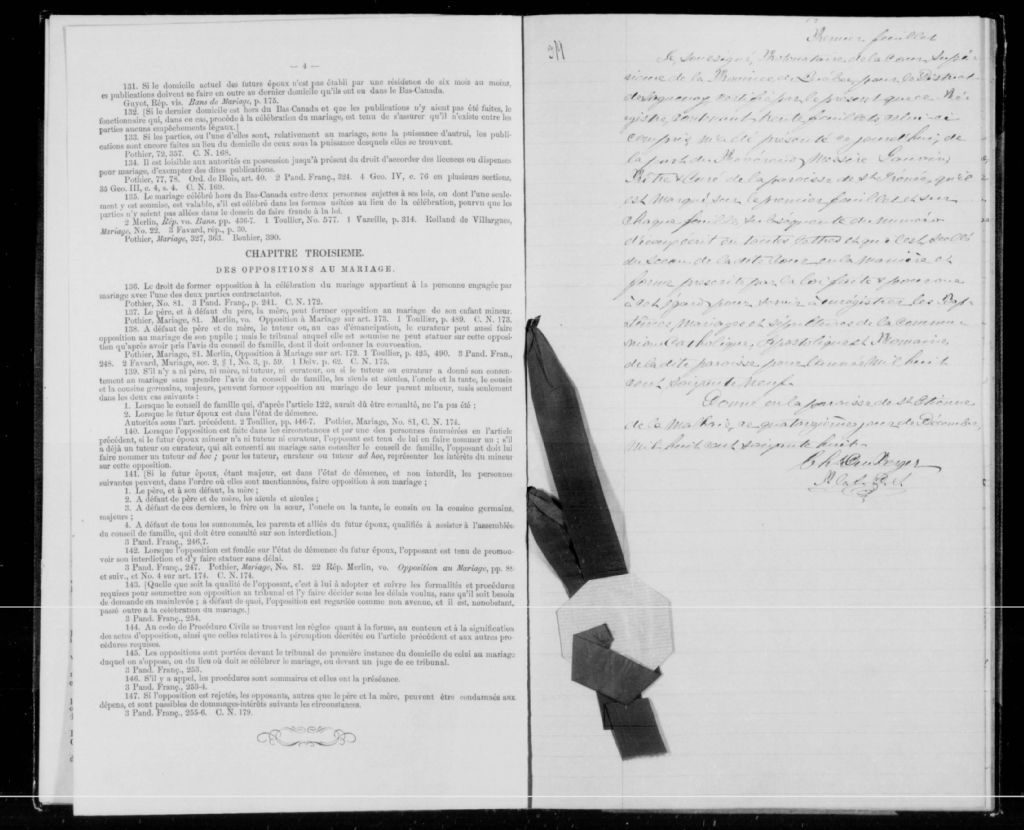 — 4 —
131. Si le domicile actuel des futurs époux n'est pas établi par une résidence de six mois au moins,
es publications doivent se faire en outre au dernier domicile qu'ils ont eu dans le Bas-Canada.
Guyot, Rép. vis. Bans de Mariage, p. 175.
132. [Si le dernier domicile est hors du Bas Canada et que les publications n'y aient pas été faites, le
fonctionnaire qui, dans ce cas, procède à la célébration du mariage, est tenu de s'assurer qu'il n'existe entre les
parties aucuns empêchements légaux.]
133. Si les parties, ou l'une d'elles sont, relativement au mariage, sous la puissance d'autrui, les publi-
cations sont encore faites au lieu du domicile de ceux sous la puissance desquels elles se trouvent.
Pothier, 72, 357. C. N. 168.
134. Il est loisible aux autorités en possession jusqu'à présent du droit d'accorder des licences ou dispenses
pour mariage, d'exempter des dites publications.
Pothier, 77, 78. Ord. de Blois, art. 40. 2 Pand. Franç., 324. 4 Geo. IV, c. 76 en plusieurs sections,
35 Geo. III, c. 4, s. 4. C. N. 169.
135. Le mariage célébré hors du Bas-Canada entre deux personnes sujettes à ses lois, ou dont l'une seule-
ment y est soumise, est valable, s'il est célébré dans les formes usitées au lieu de la célébration, pourvu que les
parties n'y soient pas allées dans le dessein de faire fraude à la loi.
2 Merlin, Rép. vo. Bans, pp. 436-7. 1 Toullier, No. 577. 1 Vazeille, p. 314. Rolland de Villargues,
Mariage, No. 22. 3 Favard, rép., p. 30.
Pothier, Mariage, 327, 363. Bouhier, 390.
CHAPITRE TROISIEME.
DES OPPOSITIONS AU MARIAGE.
136. Le droit de former opposition à la célébration du mariage appartient à la personne engagée par
mariage avec l'une des deux parties contractantes.
Pothier, No. 81. 3 Pand. Franç., p. 241. C. N. 172.
137. Le père, et à défaut du père, la mère, peut former opposition au mariage de son enfant mineur.
Pothier, Mariage, 81. Merlin, vo. Opposition à Mariage sur art. 173. 1 Toullier, p. 489. C. N. 173.
138. A défaut de père et de mère, le tuteur ou, au cas d'émancipation, le curateur peut aussi faire
opposition au mariage de son pupille; mais le tribunal auquel elle est soumise ne peut statuer sur cette opposi-
tion qu'après avoir pris l'avis du conseil de famille, dont il doit ordonner la convocation.
Pothier, Mariage, 81. Merlin, Opposition à Mariage sur art. 172. 1 Toullier, p. 425, 490. 3 Pand. Fran.,
248. 2 Favard, Mariage, sec. 2, § 1, No. 3, p. 59. 1 Delv. p. 62. C. N. 175.
139. S'il n'y a ni père, ni mère, ni tuteur, ni curateur, ou si le tuteur ou curateur a donné son consen-
tement au mariage sans prendre l'avis du conseil de famille, les aïeuls et aïeules, l'oncle et la tante, le cousin
et la cousine germains, majeurs, peuvent former opposition au mariage de leur parent mineur, mais seulement
dans les deux cas suivants:
1. Lorsque le conseil de famille qui, d'après l'article 122, aurait dû être consulté, ne l'a pas été;
2. Lorsque le futur époux est dans l'état de démence.
Autorités sous l'art. précédent. 2 Toullier, pp. 446-7. Pothier, Mariage, No. 81, C. N. 174.
140. Lorsque opposition est faite dans les circonstances et par une des personnes énumérées en l'article
précédent, si le futur époux mineur n'a ni tuteur ni curateur, l'opposant est tenu de lui en faire nommer un; s'il
a déjà un tuteur ou curateur, qui ait consenti au mariage sans consulter le conseil de famille, l'opposant doit lui
faire nommer un tuteur ad hoc; pour les tuteur, curateur ou tuteur ad hoc, représenter les intérêts du mineur
sur cette opposition.
141. [Si le futur époux, étant majeur, est dans l'état de démence, et non interdit, les personnes
suivantes peuvent, dans l'ordre où elles sont mentionnées, faire opposition à son mariage;
1. Le père, et à son défaut, la mère;
2. A défaut de père et de mère, les aïeuls et aïeules;
3. A défaut de ces derniers, le frère ou la sœur, l'oncle ou la tante, le cousin ou la cousine germains,
majeurs;
4. A défaut de tous les susnommés, les parents et alliés du futur époux, qualifiés à assister à l'assemblée
du conseil de famille, qui doit être consulté sur son interdiction.]
3 Pand. Franç., 246,7.
142. Lorsque l'opposition est fondée sur l'état de démence du futur époux, l'opposant est tenu de promou-
voir son interdiction et d'y faire statuer sans délai.
3 Pand. Franç., 247. Pothier, Mariage, No. 81. 22 Rép. Merlin, vo. Opposition au Mariage, pp.
et suiv., et No. 4 sur art. 174. C. N. 174.
143. [Quelle que soit la qualité de l'opposant, c'est à lui à adopter et suivre les formalités et procédures
requises pour soumettre son opposition au tribunal et l'y faire décider sous les délais voulus, sans qu'il soit besoin
de demande en mainlevée; à défaut de quoi, l'opposition est regardée comme non avenue, et il est, nonobstant,
passé outre à la célébration du mariage.]
3 Pand. Franç., 254.
144. Au code de Procédure Civile se trouvent les règles quant à la forme, au contenu et à la signification
des actes d'opposition, ainsi que celles relatives à la péremption décrétée ou l'article précédent et aux autres pro-
cédures requises.
145. Les oppositions sont portées devant le tribunal de première instance du domicile de celui au mariage
duquel on s'oppose, ou du lieu où doit se célébrer le mariage, ou devant un juge de ce tribunal.
3 Pand. Franç., 253.
146. S'il y a appel, les procédures sont sommaires et elles ont la préséance.
3 Pand. Franç., 253-4.
147. Si l'opposition est rejetée, les opposants, autres que le père et la mère, peuvent être condamnés aux
dépens, et sont passibles de dommages-intérêts suivant les circonstances.
3 Pand. Franç., 255-6. C. N. 179.
Premier feuillet
Je, soussigné, Protonotaire de la Cour Supé-
rieure de la Province de Québec, pour le District
de Saguenay certifie par le présent que ce Ré-
gistre, contenant trente feuillets celui-ci
compris, m'a été présenté ce jourd'hui, de
la part du Révérend Messire Gauvin,
Prêtre & Curé de la paroisse de St Irénée, qu'il
est marqué sur le premier feuillet et sur
chaque feuillet subséquent du numéro
d'icelui écrit en toutes lettres et qu'il est scellé
du sceau de la dite Cour en la manière et
forme prescrite par la loi faite & pourvue
à cet égard, pour servir à enregistrer les Bap-
têmes, Mariages et Sépultures de la Commu-
nion Catholique, Apostolique et Romaine
de la dite paroisse, pour l'année mil huit
cent soixante Neuf.
Donné en la paroisse de St Etienne
de la Malbaie, ce quatorzième jour de Décembre,
mil huit cent soixante huit.